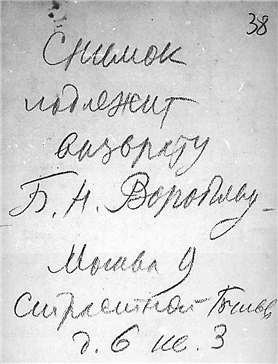 38
Снимок
подлежит
возврату
Б. Н. Воробьеву
Москва 9
Страстной бульв
д. 6 кв. 3